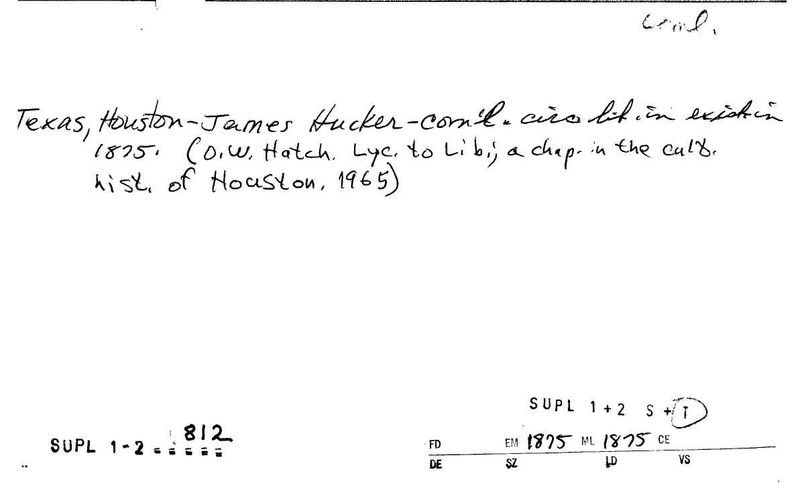 coml.
Texas, Houston-James Hucker-com'l. circ lib. in exist in
1875. (O.W. Hatch. Lyc. to Lib.; a chap. in the cult.
hist. of Houston, 1965)
SUPL 1+2 S+T
SUPL 1-2 812
FD EM 1875 ML 1875 CE
DE SZ LD VS